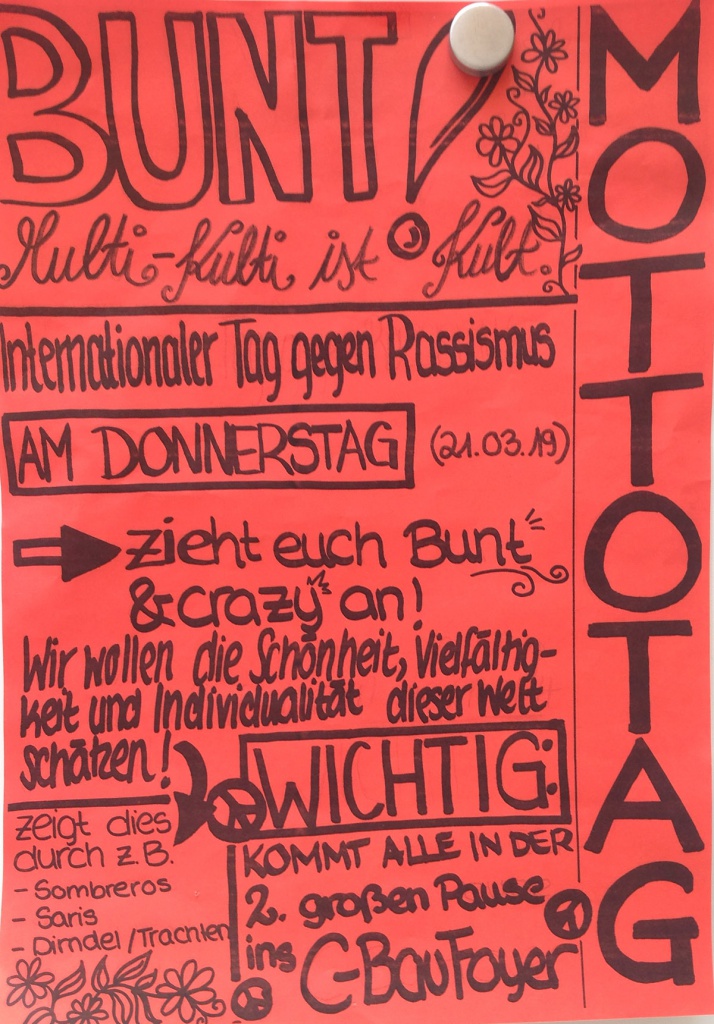 BUNT!
Multi-Kulti ist Kult.
Internationaler Tag gegen Rassismus
AM DONNERSTAG (21.03.19)
zieht euch Bunt
& crazy an!
Wir wollen die Schönheit, Vielfältig-
keit und Individualität dieser Welt
schätzen!
zeigt dies
durch z.B.
- Sombreros
- Saris
- Dirndel/Trachten
WICHTIG:
KOMMT ALLE IN DER
2. großen Pause
ins C-BauFoyer
MOTTOTAG